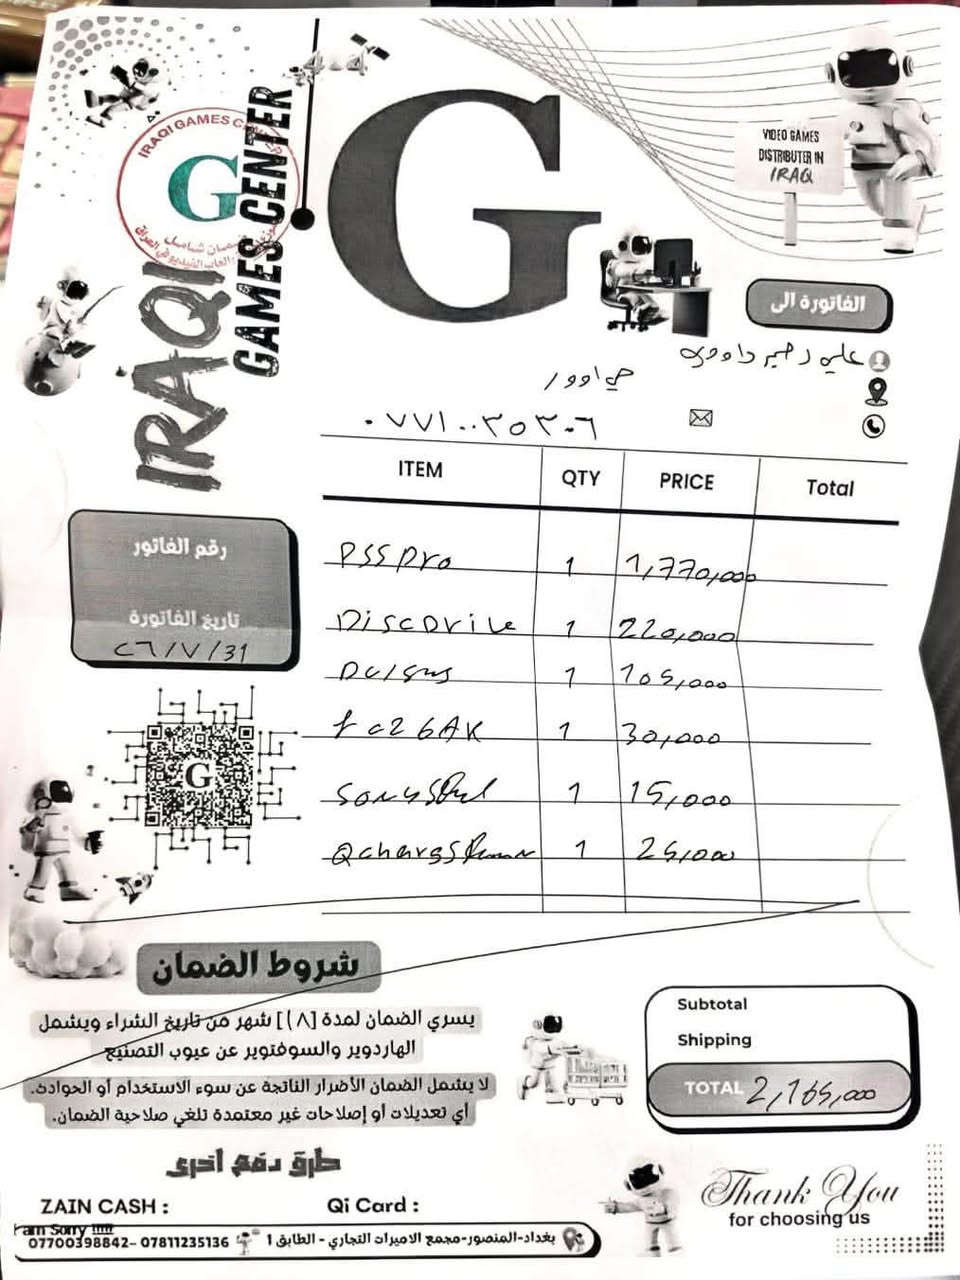 IRAQI GAMES CENTER
G
ضمان شامل
IRAQI
GAMES CENTER
G
VIDEO GAMES
DISTRIBUTER IN
IRAQ
الفاتورة الى
٠٧٧١٠٠٣٥٣٠٦
ITEM QTY PRICE Total
PS5 Pro 1 1,770,000
Disc Drive 1 220,000
1 105,000
fc26AK 1 30,000
1 15,000
1 25,000
رقم الفاتور
تاريخ الفاتورة
٢٦/٧/31
G
شروط الضمان
يسري الضمان لمدة [١٨] شهر من تاريخ الشراء ويشمل
الهاردوير والسوفتوير عن عيوب التصنيع
لا يشمل الضمان الأضرار الناتجة عن سوء الاستخدام أو الحوادث.
أي تعديلات أو إصلاحات غير معتمدة تلغي صلاحية الضمان.
Subtotal
Shipping
TOTAL 2,165,000
طرق دفع أخرى
ZAIN CASH : Qi Card :
I am Sorry !!!!!
07700398842- 07811235136
بغداد-المنصور-مجمع الاميرات التجاري - الطابق 1
Thank You
for choosing us